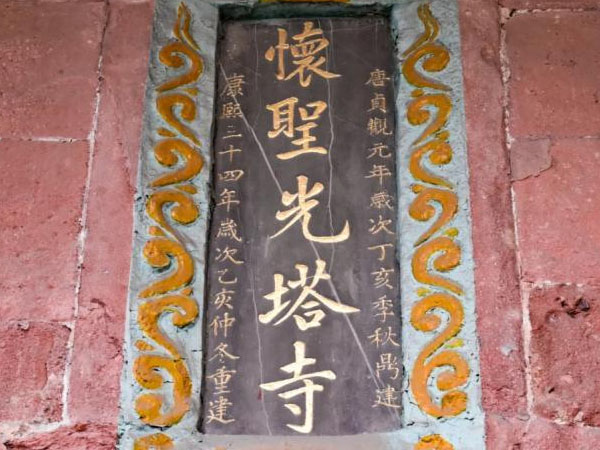 唐貞觀元年歲次丁亥季秋鼎建
懷聖光塔寺
康熙三十四年歲次乙亥仲冬重建